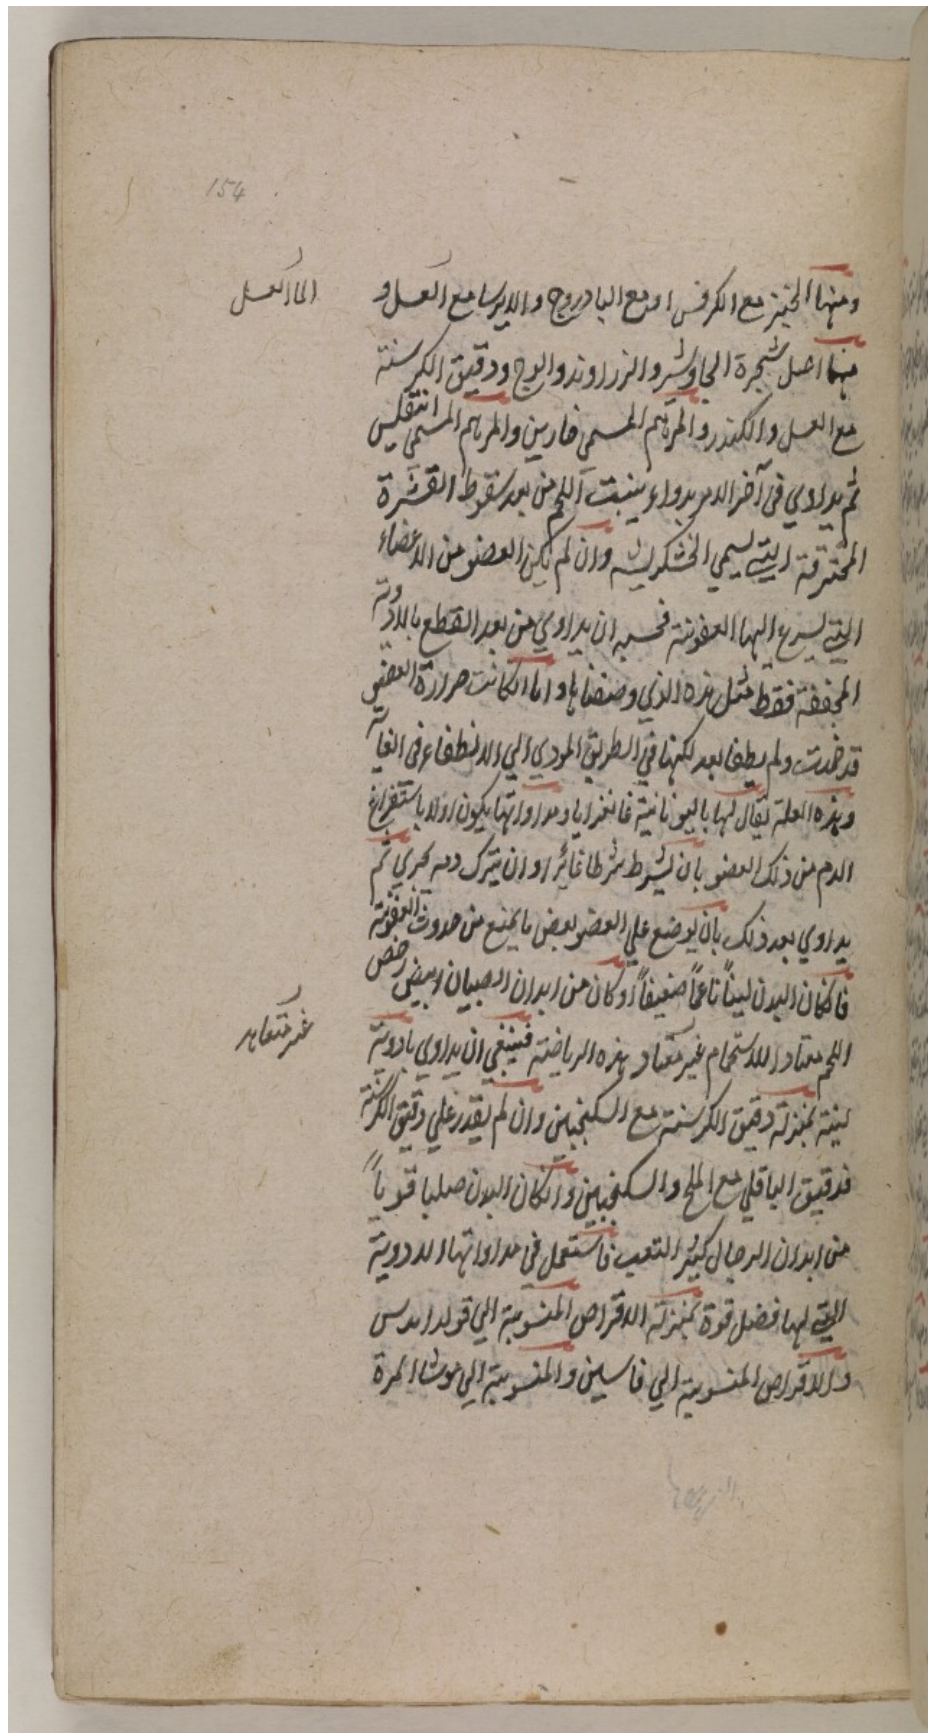 154
ومنها الخبز مع الكرفس او مع البادروج والايرسا مع العسل و
الماء العسل
منها اصل شجرة الجاوشير والزراوند والوج ودقيق الكرسنة
مع العسل والكندر والمرهم المسمى فارسن والمرهم المسمى انتقليس
ثم يداوي في آخر الامر بدواء ينبت اللحم من بعد سقوط القشرة
المحترقة التي تسمي الخشكريشه وان لم يكن العضو من الاعضاء
التي يسرع اليها العفونة فحسبه ان يداوي من بعد القطع بالادوية
المجففة فقط مثل هذه الذي وصفناها واما الكانت حرارة العضو
قد خمدت ولم يطفا بعد لكنها في الطريق المودي الي الانطفاء في الغاية
وهذه العلة يقال لها باليونانية غانغرايا ومداواتها يكون اولا باستفراغ
الدم من ذلك العضو بان يشرط شرطا غائرا وان يترك دمه يجري ثم
يداوي بعد ذلك بان يوضع علي العضو بعض ما يمنع من حدوث العفونة
فانكان البدن ليناً ناعماً ضعيفاً او كان من ابدان الصبيان ابيض رخص
اللحم معتادا للاستحمام غير معتاد بهذه الرياضة فينبغي ان يداوي بادوية
غير متعاهد
لينة بمنزلة دقيق الكرسنة مع السكنجبين وان لم يقدر علي دقيق الكرسنة
فدقيق الباقلي مع الملح والسكنجبين وانكان البدن صلبا قوياً
من ابدان الرجال كثير التعب فاستعمل في مداواتها الادوية
التي لها فضل قوة بمنزلة الاقراص المنسوبة الي قولدابدس
والاقراص المنسوبة الي فاسين والمنسوبة الي موشا المرة